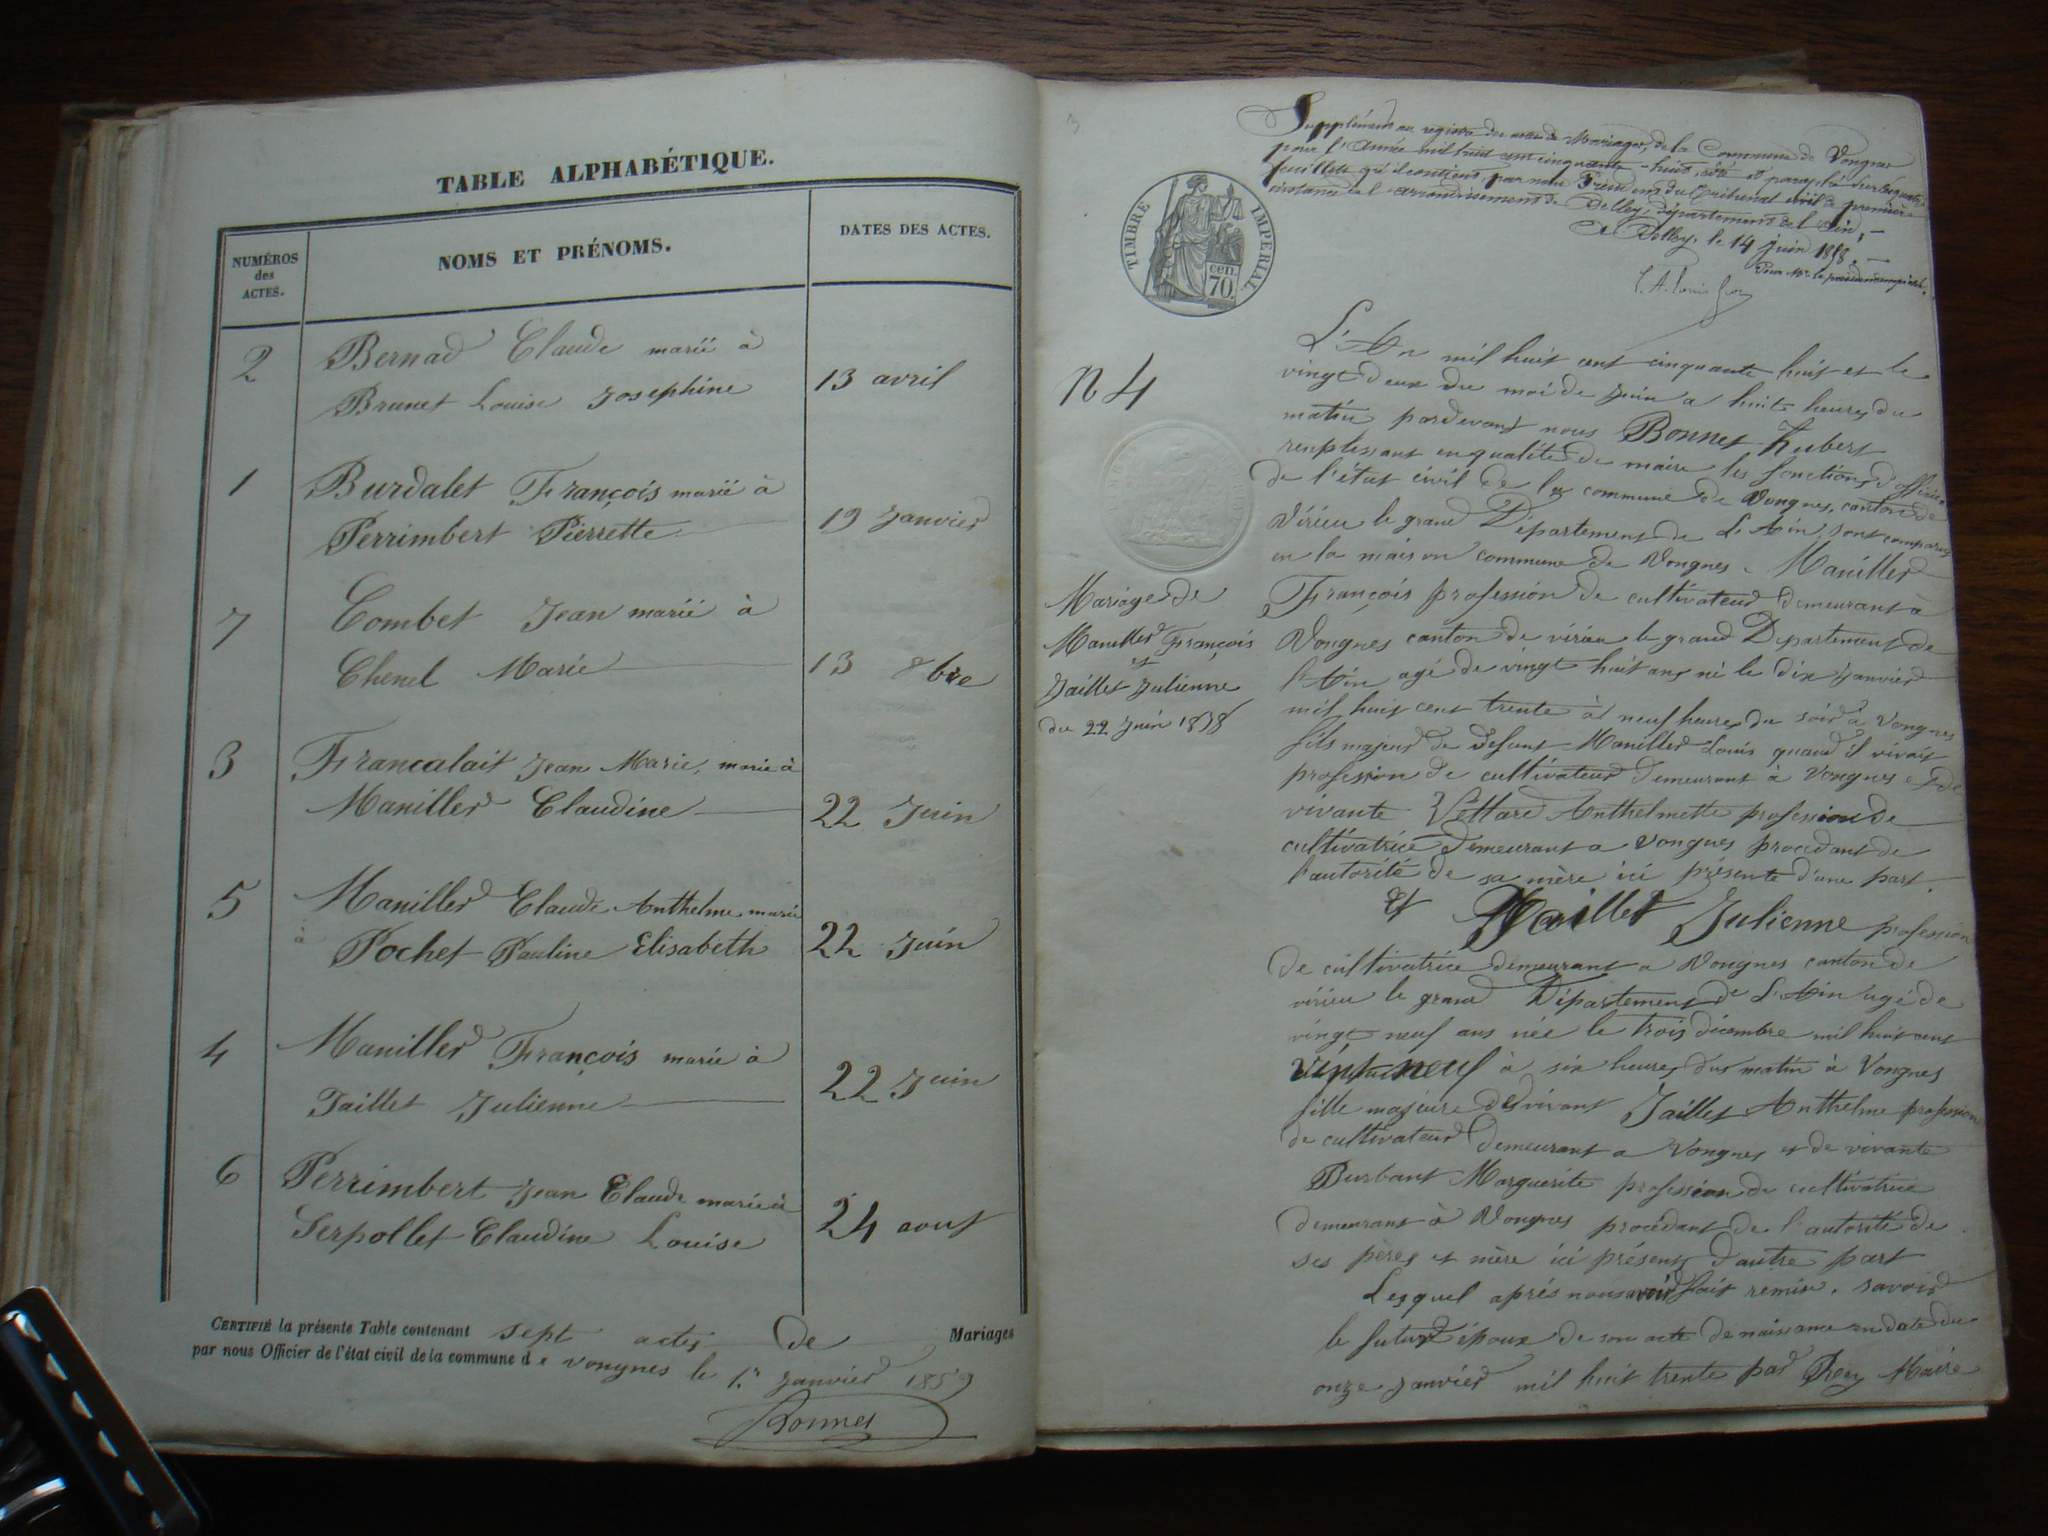 TABLE ALPHABÉTIQUE.
NUMÉROS
des
ACTES.
NOMS ET PRÉNOMS.
DATES DES ACTES.
2 Bernad Claude marié à
Brunet Louise Josephine 13 avril
1 Burdalet François marié à
Perrimbert Pierrette 19 Janvier
7 Combet Jean marié à
Chenel Marie 13 8bre
3 Francalait Jean Marie, marié à
Maniller Claudine 22 Juin
5 Maniller Claude Anthelme marié
à Pochet Pauline Elisabeth 22 Juin
4 Maniller François marié à
Jaillet Julienne 22 Juin
6 Perrimbert Jean Claude marié à
Serpollet Claudine Louise 24 aout
CERTIFIÉ la présente Table contenant sept actes de Mariages
par nous Officier de l'état civil de la commune de vongnes le 1er Janvier 1859
Bonnet
3
Supplément au registre des actes de Mariages, de la Commune de Vongnes
pour l'année mil huit cent cinquante-huit, côté et paraphé sur
feuillets qu'il contient, par nous Président du Tribunal civil de première
instance de l'arrondissement de Belley, département de l'Ain,
A Belley, le 14 juin 1858.
Pour Mr le président
TIMBRE IMPERIAL
cen.
70.
N 4
Mariage de
Maniller François
et
Jaillet Julienne
du 22 Juin 1858
L'An mil huit cent cinquante huit et le
vingt deux du moi de Juin a huite heures du
matin pardevant nous Bonnet Hubert
remplissant en qualité de maire les fonctions d'officier
de l'état civil de la commune de Vongnes, canton de
Virieu le grand Département de L'Ain, sont comparus
en la maison commune de Vongnes. Maniller
François profession de cultivateur demeurant à
Vongnes canton de virieu le grand Departement de
l'Ain agé de vingt huit ans né le dix Janvier
mil huit cent trente à neuf heures du soir à Vongnes
fils majeur de defunt Maniller Louis quand il vivait
profession de cultivateur demeurant à Vongnes et de
vivante Vettard Anthelmette profession de
cultivatrice demeurant a Vongnes procédant de
l'autorité de sa mère ici présente d'une part.
Et Jaillet Julienne profession
de cultivatrice demeurant a Vongnes canton de
virieu le grand Département de L'Ain agé de
vingt neuf ans née le trois décembre mil huit cent
vingt neuf à six heures du matin à Vongnes
fille majeure de vivant Jaillet Anthelme profession
de cultivateur demeurant a Vongnes et de vivante
Burbant Marguerite profession de cultivatrice
demeurant à Vongnes procédant de l'autorité de
ses pères et mère ici présent d'autre part
Lesquel après nous avoir fait remise, savoir
le futur époux de son acte de naissance en date du
onze Janvier mil huit trente par Rey Maire